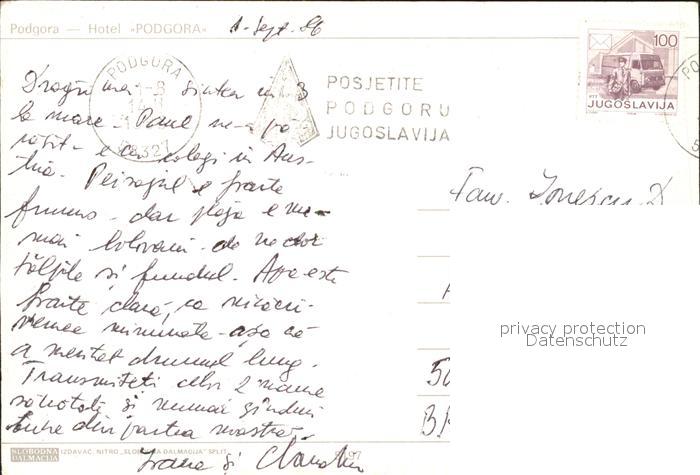 Podgora — Hotel «PODGORA»
1. Sept. 86
PODGORA
58327
POSJETITE
PODGORU
JUGOSLAVIJA
100
PTT
JUGOSLAVIJA
Dragii mei Sintem cu 3
la mare - Paul ne-a pă
răsit - e cu colegi in Aus-
tria. Peisajul e foarte
frumos - dar plaja e nu-
mai bolovani - de ne dor
tălpile si fundul. Apa este
foarte clară,
vremea minunată - asa că
a meritat drumul lung.
Transmiteti celor 2 mame
sănătate si numai gînduri
bune din partea noastră.
si
Fam. Ionescu D
privacy protection
Datenschutz
50
SLOBODNA
DALMACIJA
IZDAVAČ: NITRO „SLOBODNA DALMACIJA" SPLIT